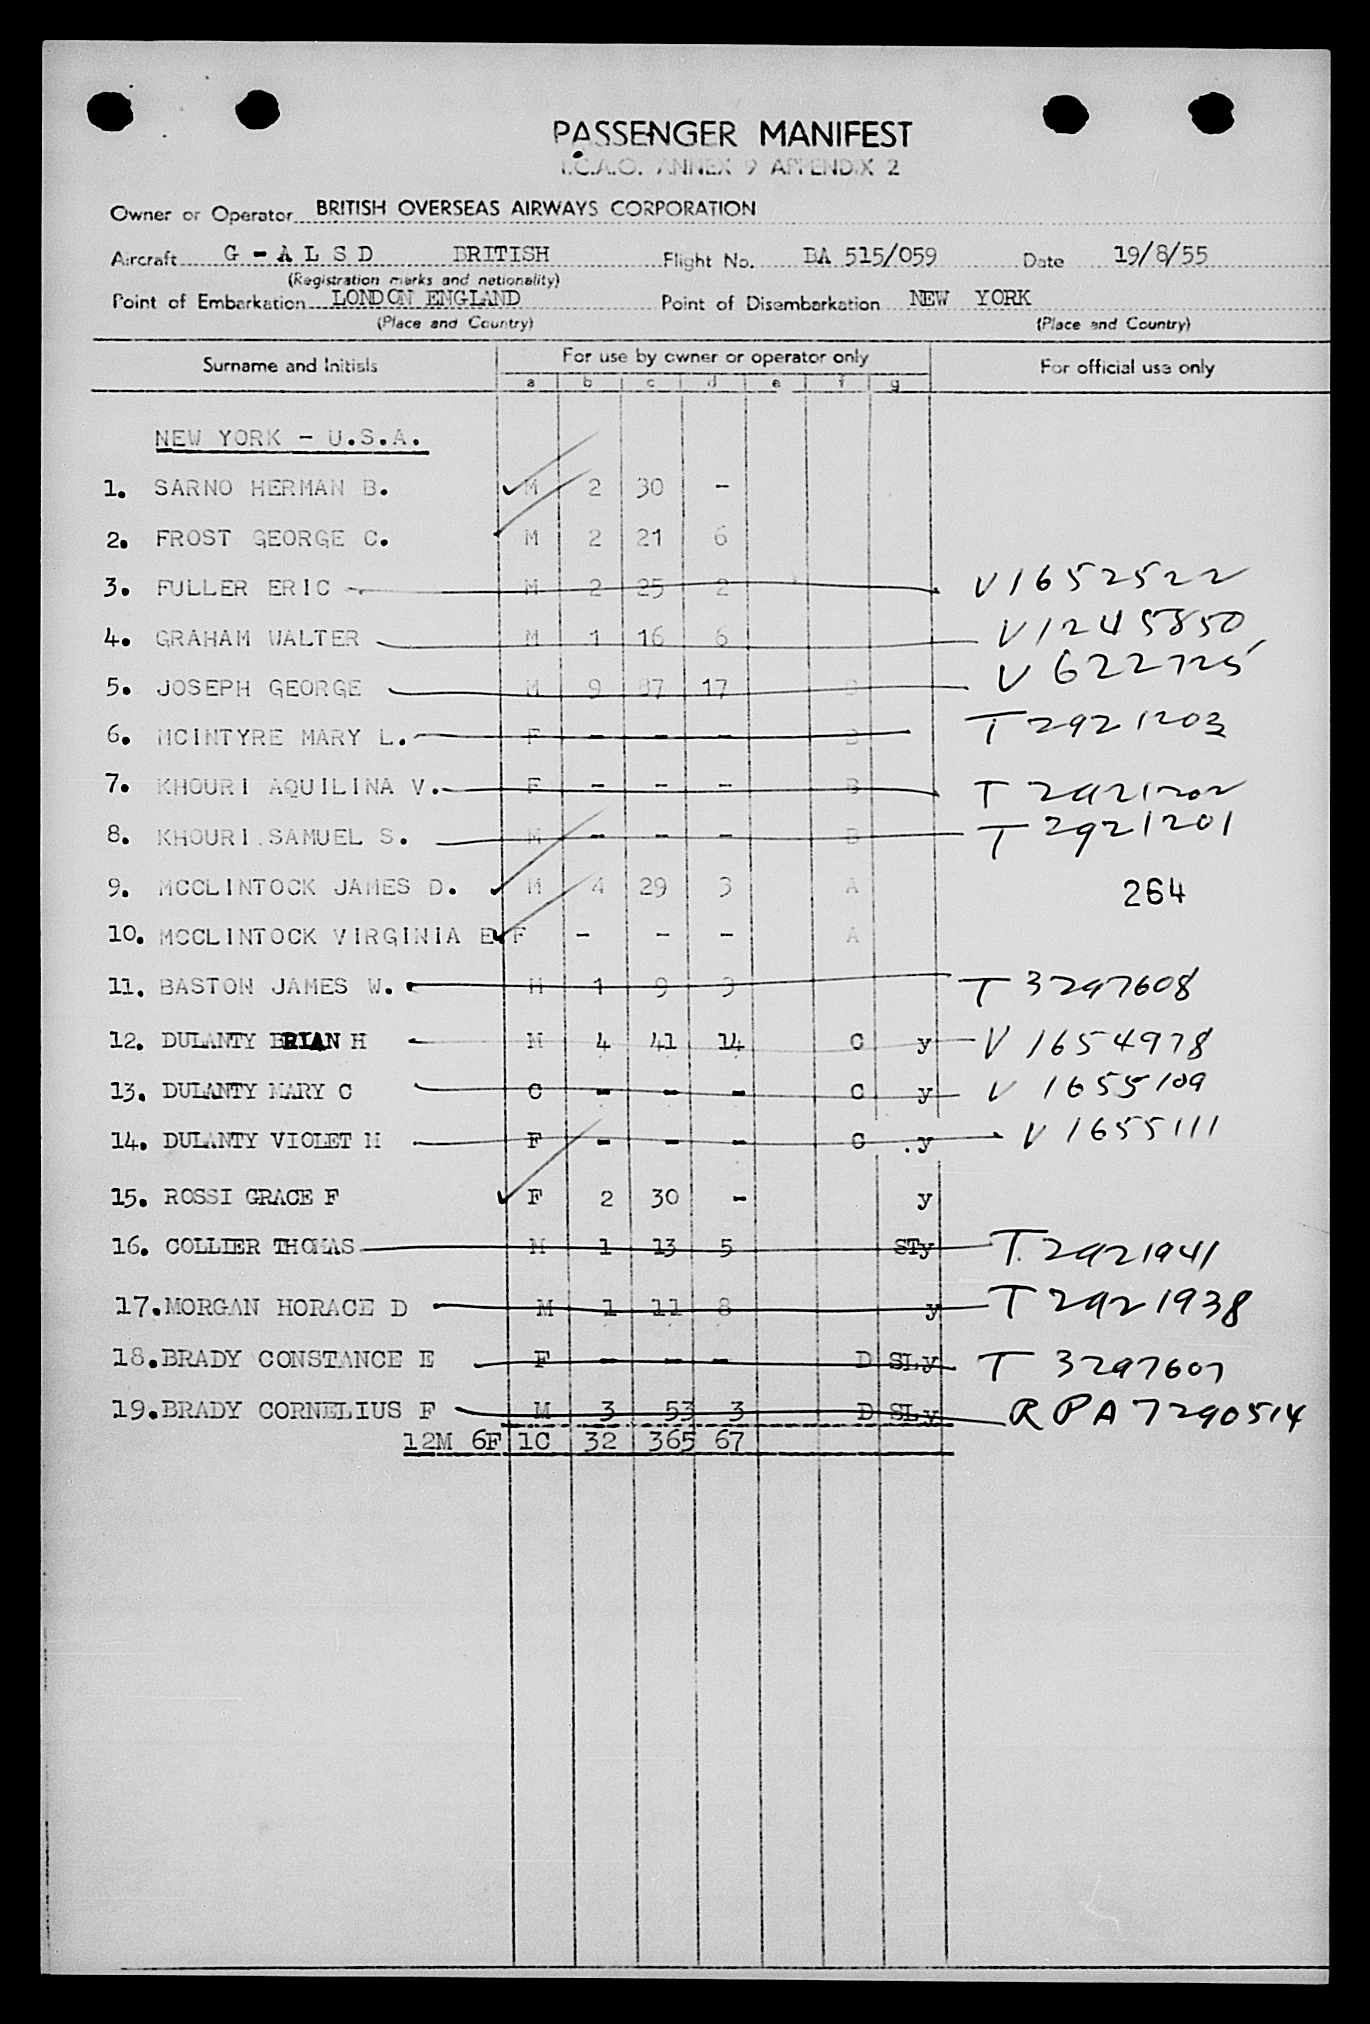 PASSENGER MANIFEST
I.C.A.O. ANNEX 9 APPENDIX 2
Owner or Operator BRITISH OVERSEAS AIRWAYS CORPORATION
Aircraft G - A L S D BRITISH Flight No. BA 515/059 Date 19/8/55
(Registration marks and nationality)
Point of Embarkation LONDON ENGLAND Point of Disembarkation NEW YORK
(Place and Country) (Place and Country)
Surname and Initials For use by owner or operator only For official use only
a b c d e f g
NEW YORK - U.S.A.
1. SARNO HERMAN B. M 2 30 -
2. FROST GEORGE C. M 2 21 6
3. FULLER ERIC M 2 25 2 V1652522
4. GRAHAM WALTER M 1 16 6 V1245850
5. JOSEPH GEORGE M 9 87 17 B V622725
6. MCINTYRE MARY L. F - - - B T2921203
7. KHOURI AQUILINA V. F - - - B T2921202
8. KHOURI SAMUEL S. M - - - B T2921201
9. MCCLINTOCK JAMES D. M 4 29 3 A 264
10. MCCLINTOCK VIRGINIA E F - - - A
11. BASTON JAMES W. M 1 9 9 T 3297608
12. DULANTY BRIAN H M 4 41 14 C y V 1654978
13. DULANTY MARY C C - - - C y V 1655109
14. DULANTY VIOLET M F - - - C .y V 1655111
15. ROSSI GRACE F F 2 30 - y
16. COLLIER THOMAS M 1 13 5 STy T. 2921941
17. MORGAN HORACE D M 1 11 8 y T 2921938
18. BRADY CONSTANCE E F - - - D SLy T 3297607
19. BRADY CORNELIUS F M 3 53 3 D SLy RPA7290514
12M 6F 1C 32 365 67